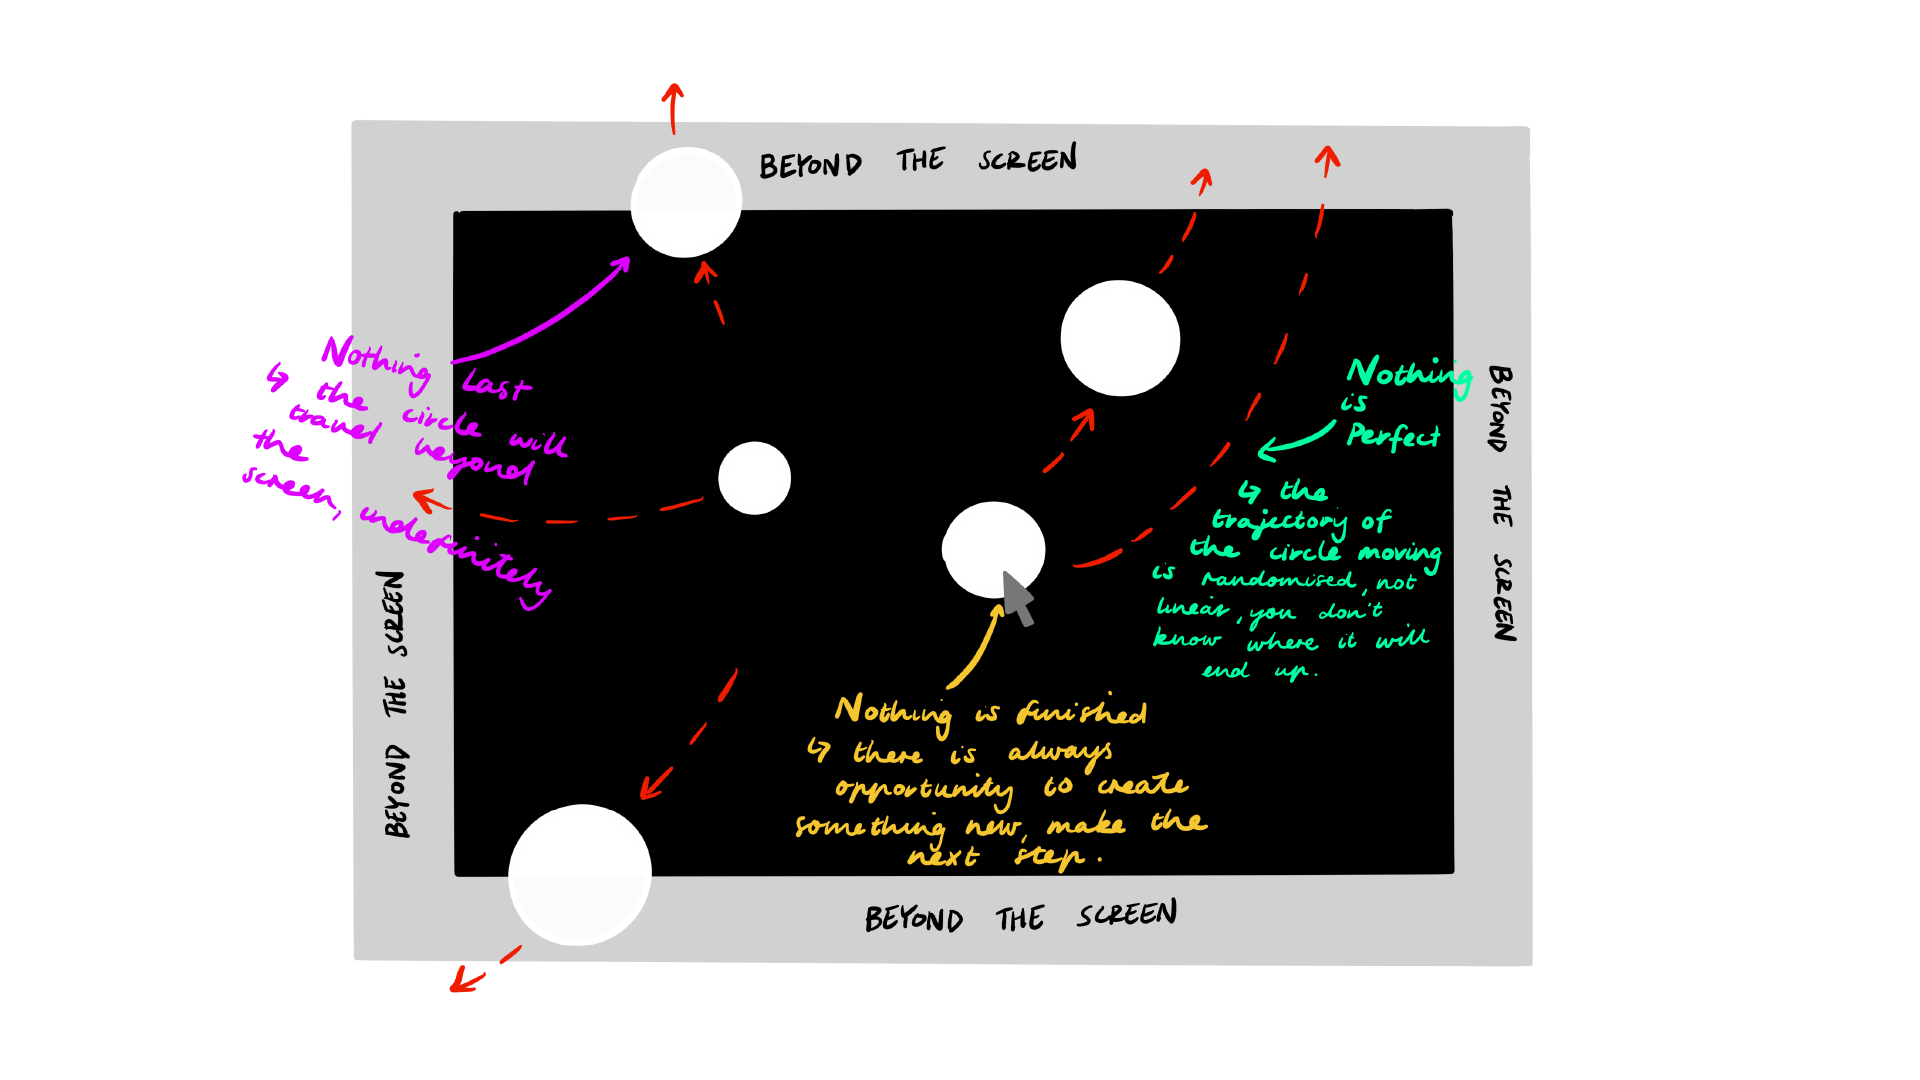 BEYOND THE SCREEN
Nothing Last
↳ the circle will
travel beyond
the
screen, indefinitely
BEYOND THE SCREEN
Nothing
is
Perfect
↳ the
trajectory of
the circle moving
is randomised, not
linear, you don't
know where it will
end up.
BEYOND THE SCREEN
Nothing is finished
↳ there is always
opportunity to create
something new, make the
next step.
BEYOND THE SCREEN